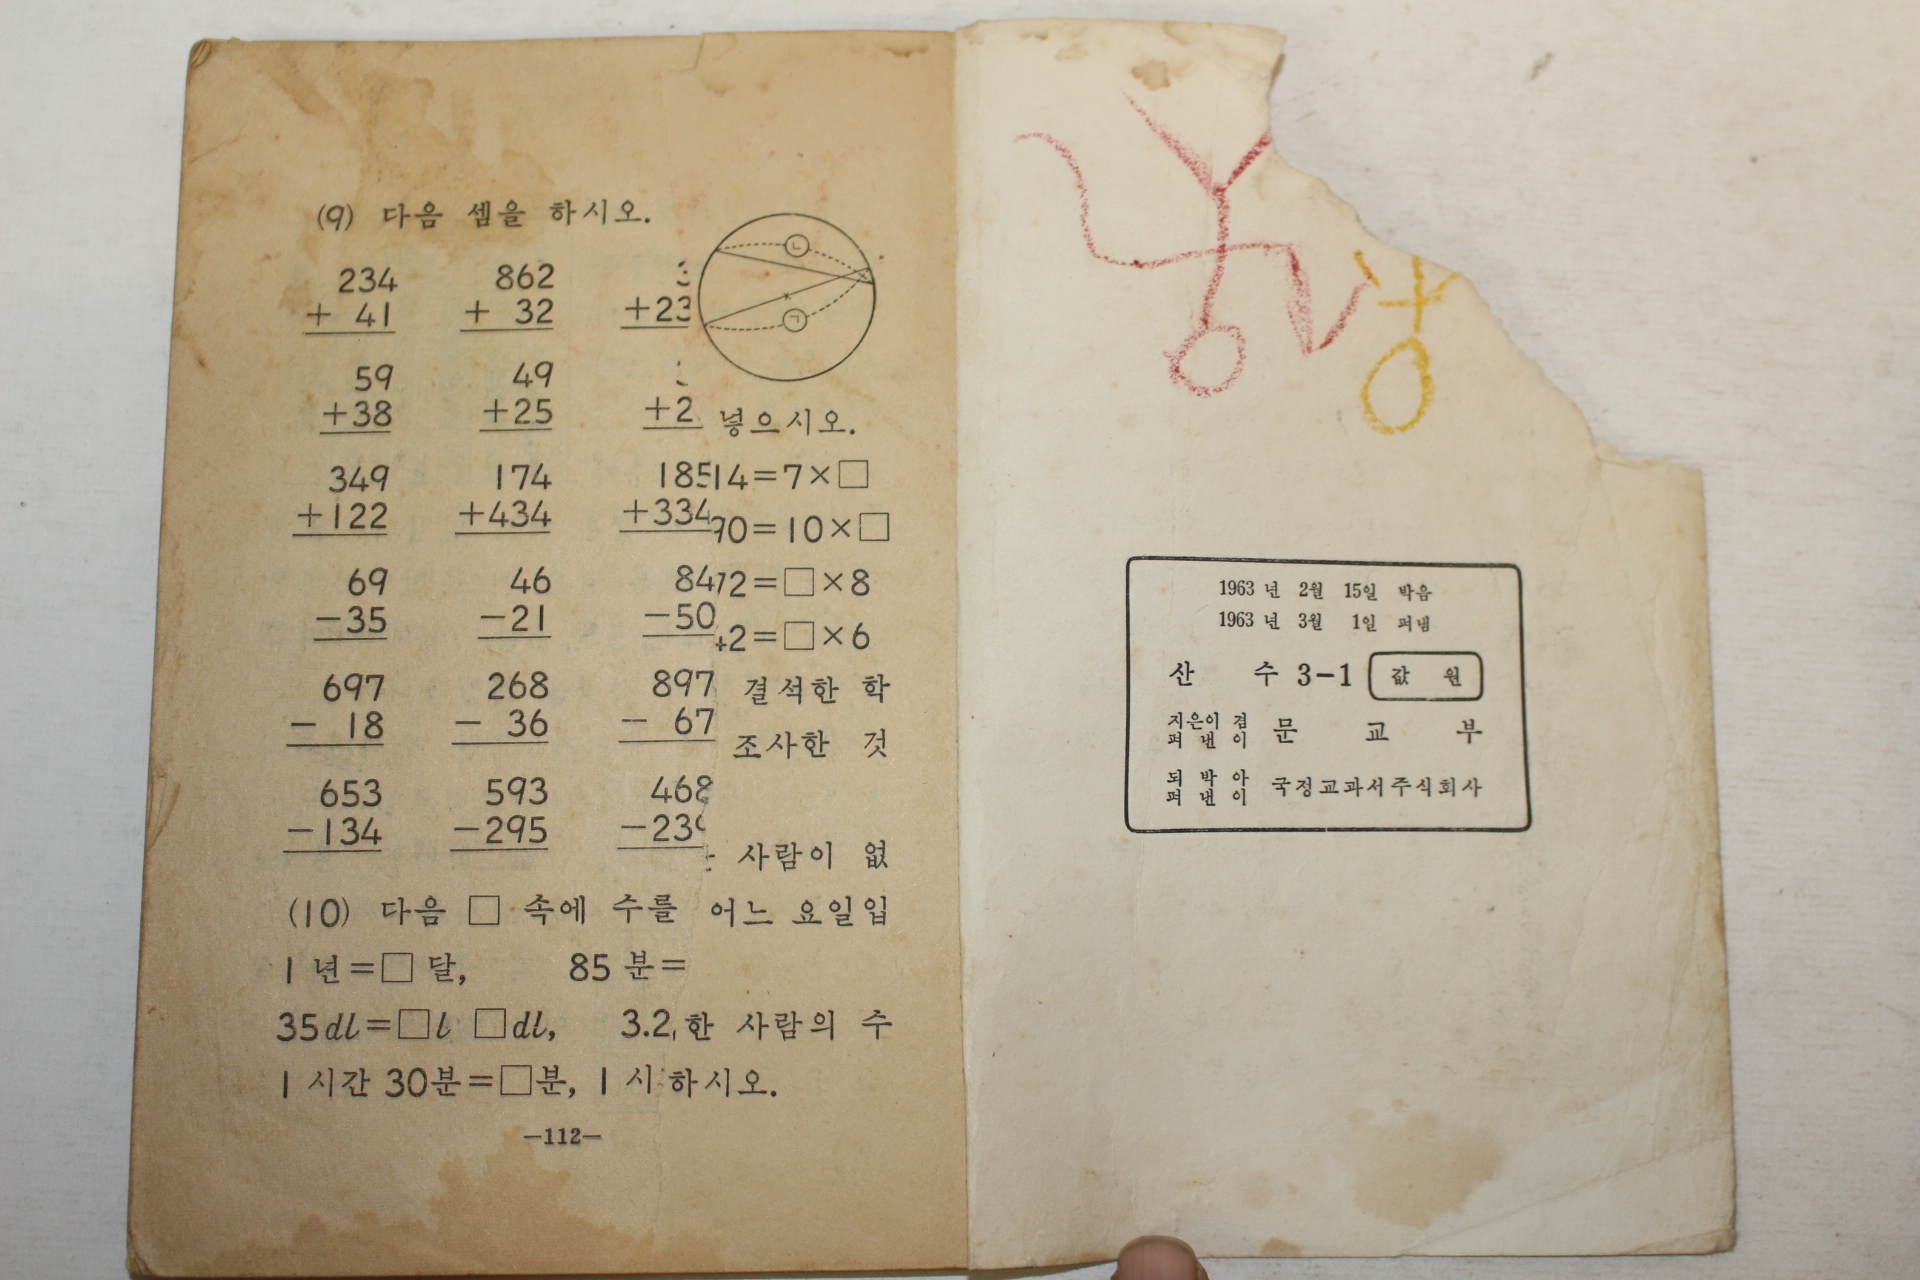 (9) 다음 셈을 하시오.
234 862
+ 41 + 32 +23
59 49
+38 +25 +2
349 174 185
+122 +434 +334
69 46 84
-35 -21 -50
697 268 897
- 18 - 36 - 67
653 593 468
-134 -295 -239
(10) 다음 □ 속에 수를
1 년=□ 달, 85 분=
35dl=□l □dl, 3.2
1 시간 30분=□분, 1 시
-112-
ㄴ
ㄱ
넣으시오.
14=7×□
90=10×□
72=□×8
42=□×6
결석한 학
조사한 것
사람이 없
어느 요일입
한 사람의 수
하시오.
1963 년 2월 15일 박음
1963 년 3월 1일 펴냄
산 수 3-1 값 원
지은이 겸
펴 낸 이 문 교 부
되 박 아
펴 낸 이 국정교과서주식회사